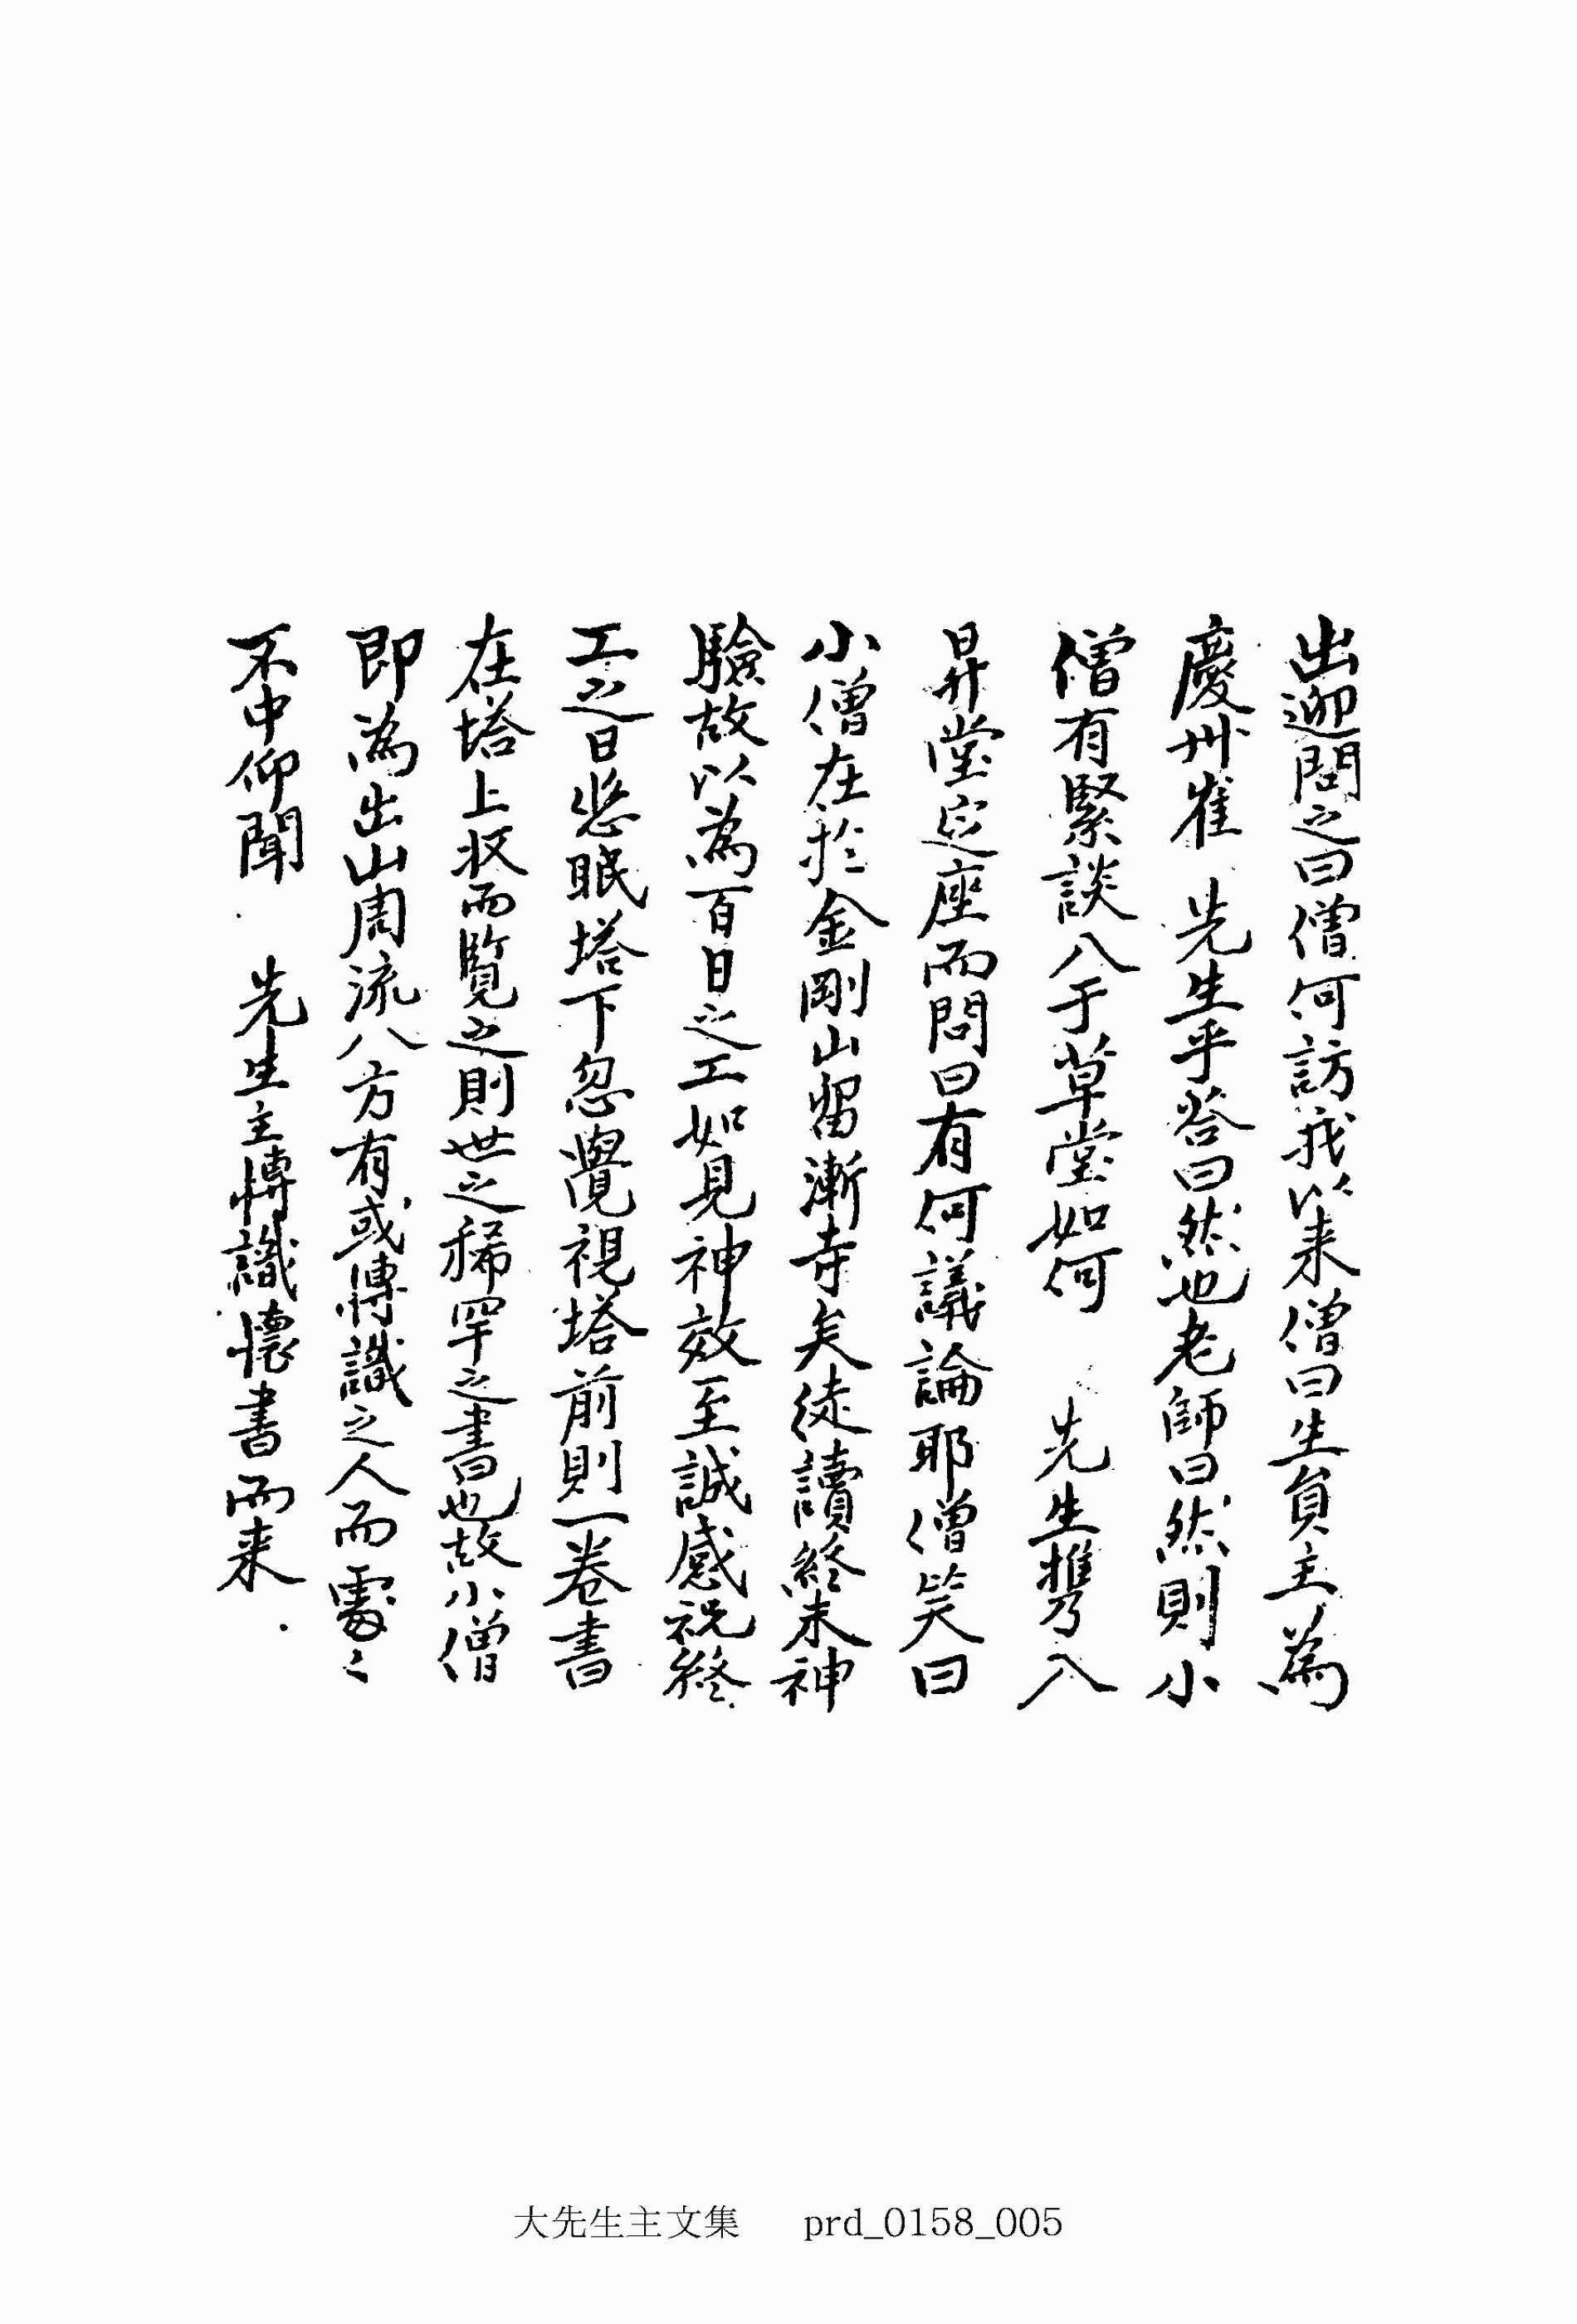 出迎問之曰僧何訪我以来僧曰生員主為
慶州崔 先生乎答曰然也老師曰然則小
僧有緊談入于草堂如何 先生携入
昇堂定座而問曰有何議論耶僧笑曰
小僧在於金剛山留漸寺矣徒讀終未神
驗故以為百日之工如見神效至誠感祝終
工之日悲眠塔下忽覺視塔前則一卷書
在塔上収而覽之則世之稀罕之書也故小僧
即為出山周流八方有或博識之人而處〻
不中仰聞 先生主博識懷書而来
大先生主文集 prd_0158_005